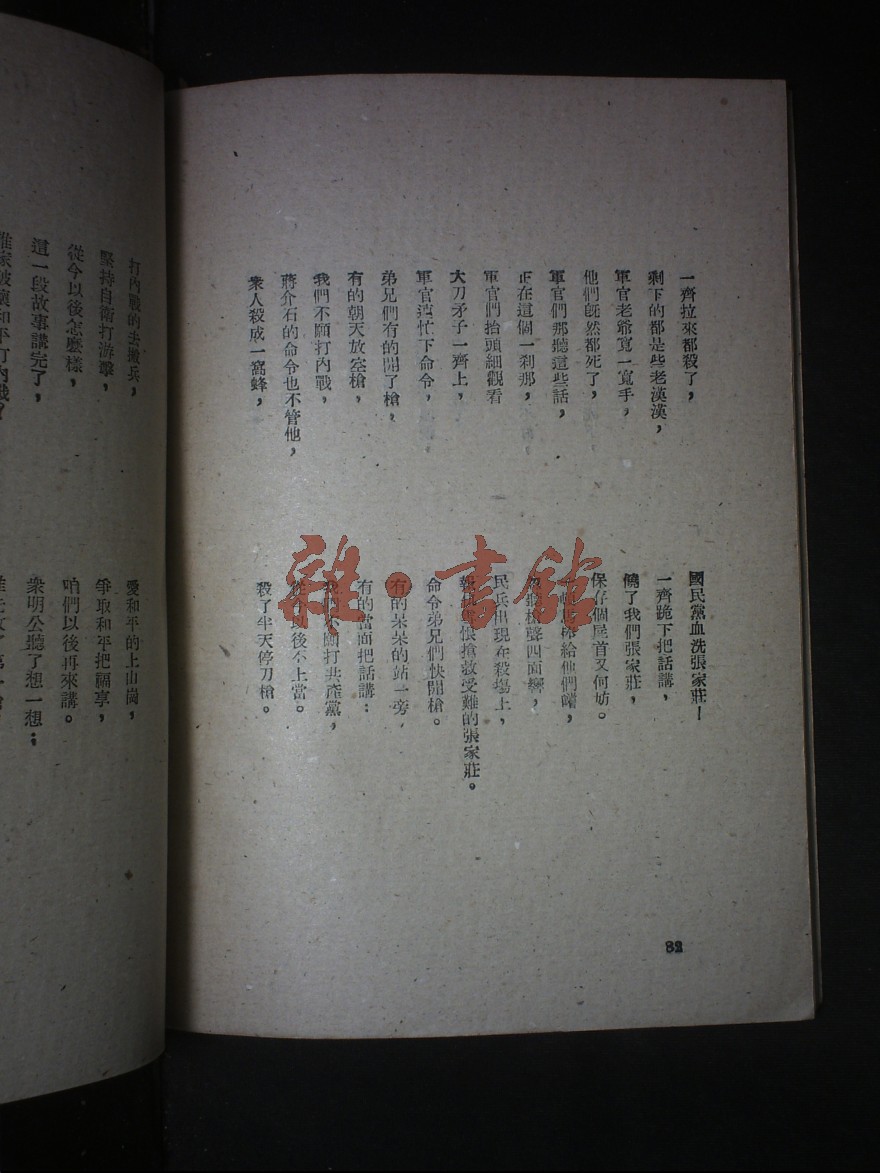 一齊拉來都殺了，
國民黨血洗張家莊—
剩下的都是些老漢漢，
一齊跪下把話講，
軍官老爺寬一寬手，
饒了我們張家莊，
他們旣然都死了，
保存個屍首又何妨。
軍官們那聽這些話，
一頓馬棒給他們嚐，
正在這個一剎那，
槍聲四面響，
軍官們抬頭細觀看
民兵出現在殺場上，
大刀矛子一齊上，
報仇雪恨搶救受難的張家莊。
軍官連忙下命令，
命令弟兄們快開槍。
弟兄們有的開了槍，
有的呆呆的站一旁，
有的朝天放空槍，
有的當面把話講：
我們不願打內戰，
我們不願打共產黨，
蔣介石的命令也不管他，
從今以後不上當。
衆人殺成一窩蜂，
殺了半天停刀槍。
82
打內戰的去搬兵，
愛和平的上山崗，
堅持自衛打游擊，
爭取和平把福享，
從今以後怎麼樣，
咱們以後再來講。
這一段故事講完了，
衆明公聽了想一想；
誰家破壞和平打內戰？
雜·書館